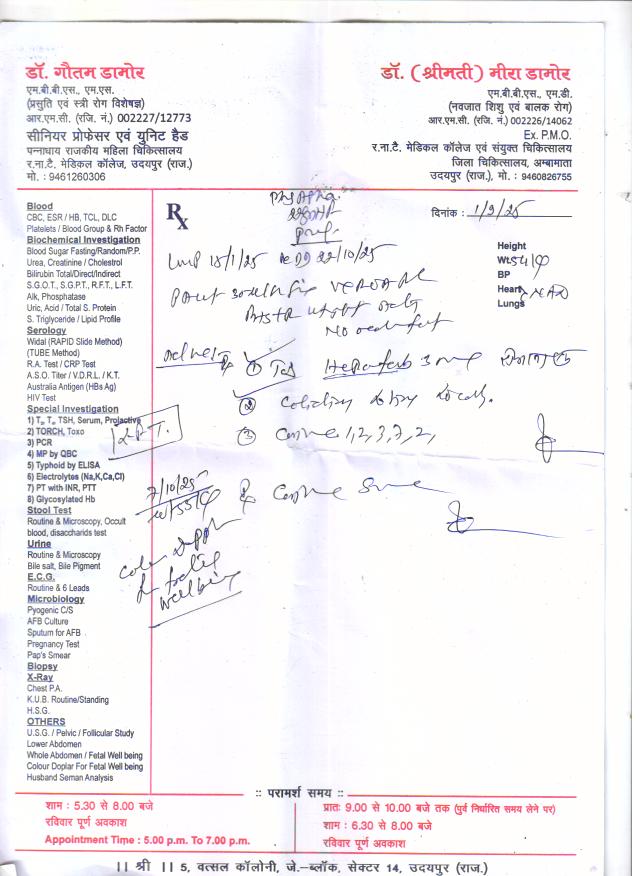 डॉ. गौतम डामोर
एम.बी.बी.एस., एम.एस.
(प्रसुति एवं स्त्री रोग विशेषज्ञ)
आर.एम.सी. (रजि. नं.) 002227/12773
सीनियर प्रोफेसर एवं युनिट हैड
पन्नाधाय राजकीय महिला चिकित्सालय
र.ना.टै. मेडिकल कॉलेज, उदयपुर (राज.)
मो. : 9461260306
डॉ. (श्रीमती) मीरा डामोर
एम.बी.बी.एस., एम.डी.
(नवजात शिशु एवं बालक रोग)
आर.एम.सी. (रजि. नं.) 002226/14062
Ex. P.M.O.
र.ना.टै. मेडिकल कॉलेज एवं संयुक्त चिकित्सालय
जिला चिकित्सालय, अम्बामाता
उदयपुर (राज.), मो. : 9460826755
Blood
CBC, ESR / HB, TCL, DLC
Platelets / Blood Group & Rh Factor
Biochemical Investigation
Blood Sugar Fasting/Random/P.P.
Urea, Creatinine / Cholestrol
Bilirubin Total/Direct/Indirect
S.G.O.T., S.G.P.T., R.F.T., L.F.T.
Alk, Phosphatase
Uric, Acid / Total S. Protein
S. Triglyceride / Lipid Profile
Serology
Widal (RAPID Slide Method)
(TUBE Method)
R.A. Test / CRP Test
A.S.O. Titer / V.D.R.L. / K.T.
Australia Antigen (HBs Ag)
HIV Test
Special Investigation
1) T₃, T₄, TSH, Serum, Prolactive
2) TORCH, Toxo
3) PCR
4) MP by QBC
5) Typhoid by ELISA
6) Electrolytes (Na,K,Ca,Cl)
7) PT with INR, PTT
8) Glycosylated Hb
Stool Test
Routine & Microscopy, Occult
blood, disaccharids test
Urine
Routine & Microscopy
Bile salt, Bile Pigment
E.C.G.
Routine & 6 Leads
Microbiology
Pyogenic C/S
AFB Culture
Sputum for AFB
Pregnancy Test
Pap's Smear
Biopsy
X-Ray
Chest P.A.
K.U.B. Routine/Standing
H.S.G.
OTHERS
U.S.G. / Pelvic / Follicular Study
Lower Abdomen
Whole Abdomen / Fetal Well being
Colour Doplar For Fetal Well being
Husband Seman Analysis
Rx
दिनांक : 1/9/25
Height
Wt. 54
BP
Heart NAD
Lungs
LMP 18/1/25 EDD 22/10/25
① Tab
②
locally.
③ 1, 2, 3, 7, 2,
7/10/25
wellbeing
:: परामर्श समय ::
शाम : 5.30 से 8.00 बजे
रविवार पूर्ण अवकाश
Appointment Time : 5.00 p.m. To 7.00 p.m.
प्रातः 9.00 से 10.00 बजे तक (पुर्व निर्धारित समय लेने पर)
शाम : 6.30 से 8.00 बजे
रविवार पूर्ण अवकाश
|| श्री || 5, वत्सल कॉलोनी, जे.-ब्लॉक, सेक्टर 14, उदयपुर (राज.)